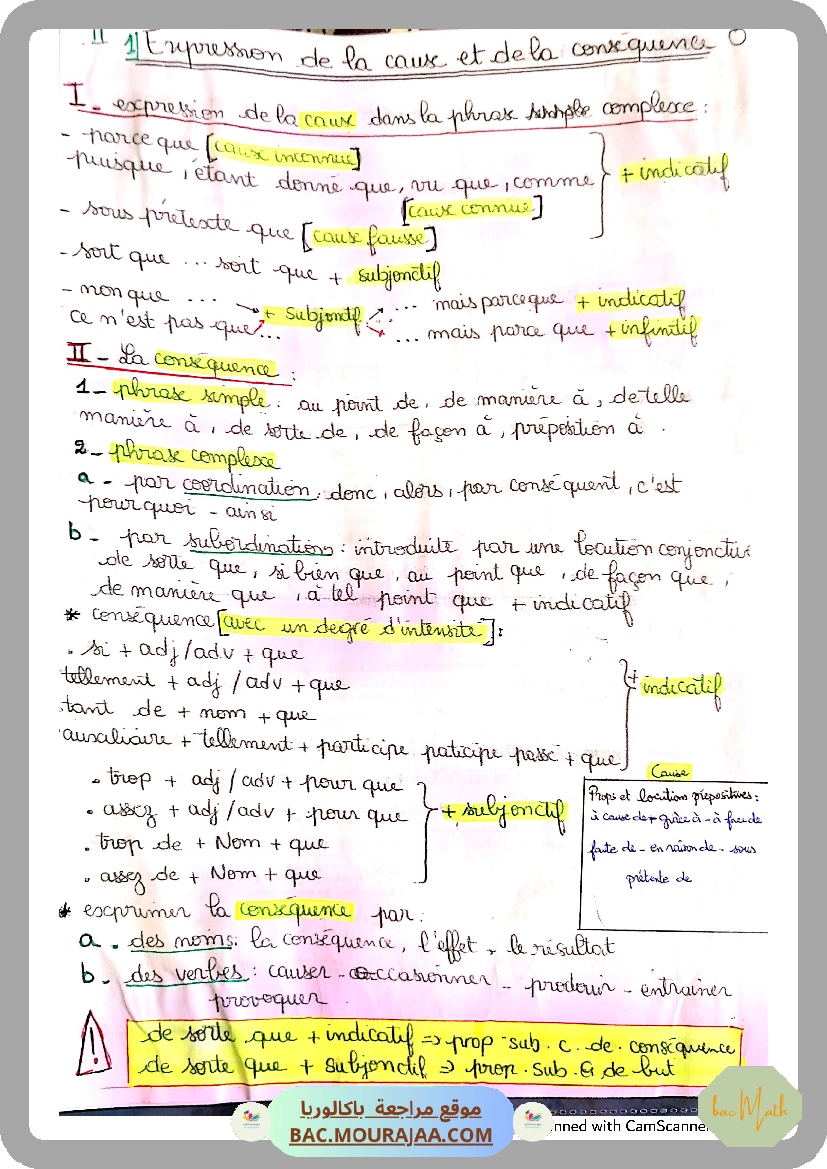 II 1) Expression de la cause et de la conséquence
I - expression de la cause dans la phrase simple complexe :
- parce que [cause inconnue]
puisque, étant donné que, vu que, comme
[cause connue]
+ indicatif
- sous prétexte que [cause fausse]
- soit que ... soit que + subjonctif
- non que ... + Subjonctif ... mais parce que + indicatif
ce n'est pas que ... ... mais parce que + infinitif
II - La conséquence :
1 - phrase simple : au point de, de manière à, de telle
manière à, de sorte de, de façon à, préposition à .
2 - phrase complexe
a - par coordination : donc, alors, par conséquent, c'est
pourquoi - ainsi
b - par subordination : introduite par une locution conjonctiv
de sorte que, si bien que, au point que, de façon que,
de manière que, à tel point que + indicatif
* conséquence [avec un degré d'intensité] :
. si + adj/adv + que
tellement + adj / adv + que
tant de + nom + que
auxiliaire + tellement + participe paticipe passé + que
+ indicatif
. trop + adj/adv + pour que
. assez + adj/adv + pour que
. trop de + Nom + que
. assez de + Nom + que
+ subjonctif
Cause
Props et locution prépositives :
à cause de + grâce à - à force de
faute de - en raison de - sous
prétexte de
* exprimer la conséquence par :
a . des noms : la conséquence, l'effet, le résultat
b . des verbes : causer - occasionner - produir - entraîner
provoquer .
de sorte que + indicatif => prop . sub . c . de . conséquence
de sorte que + subjonctif => prop . sub . C de but
موقع مراجعة باكالوريا
BAC.MOURAJAA.COM
nned with CamScanner
bac Math